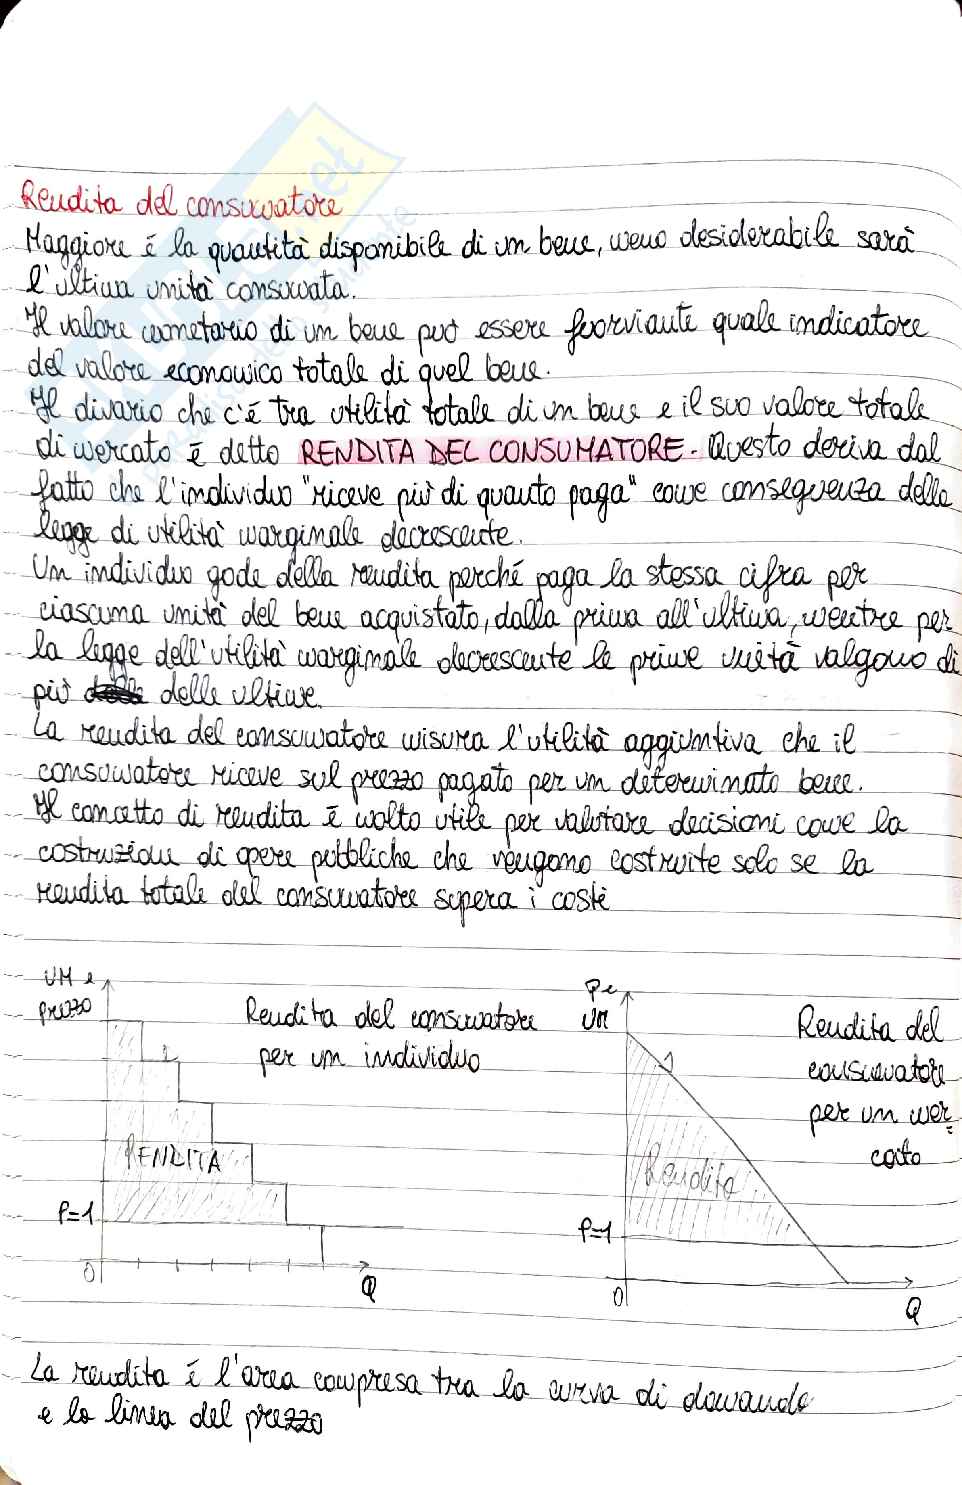 Rendita del consumatore
Maggiore é la quantità disponibile di un bene, meno desiderabile sarà
l'ultima unità consumata.
Il valore monetario di un bene può essere fuorviante quale indicatore
del valore economico totale di quel bene.
Il divario che c'é tra utilità totale di un bene e il suo valore totale
di mercato é detto RENDITA DEL CONSUMATORE. Questo deriva dal
fatto che l'individuo "riceve più di quanto paga" come conseguenza della
legge di utilità marginale decrescente.
Un individuo gode della rendita perché paga la stessa cifra per
ciascuna unità del bene acquistato, dalla prima all'ultima, mentre per
la legge dell'utilità marginale decrescente le prime unità valgono di
più delle ultime.
La rendita del consumatore misura l'utilità aggiuntiva che il
consumatore riceve sul prezzo pagato per un determinato bene.
Il concetto di rendita é molto utile per valutare decisioni come la
costruzione di opere pubbliche che vengono costruite solo se la
rendita totale del consumatore supera i costi
UM e
prezzo
Rendita del consumatore
per un individuo
RENDITA
P=1
0
Q
P e
UM
Rendita del
consumatore
per un mer=
cato
Rendita
P=1
0
Q
La rendita é l'area compresa tra la curva di domanda
e la linea del prezzo